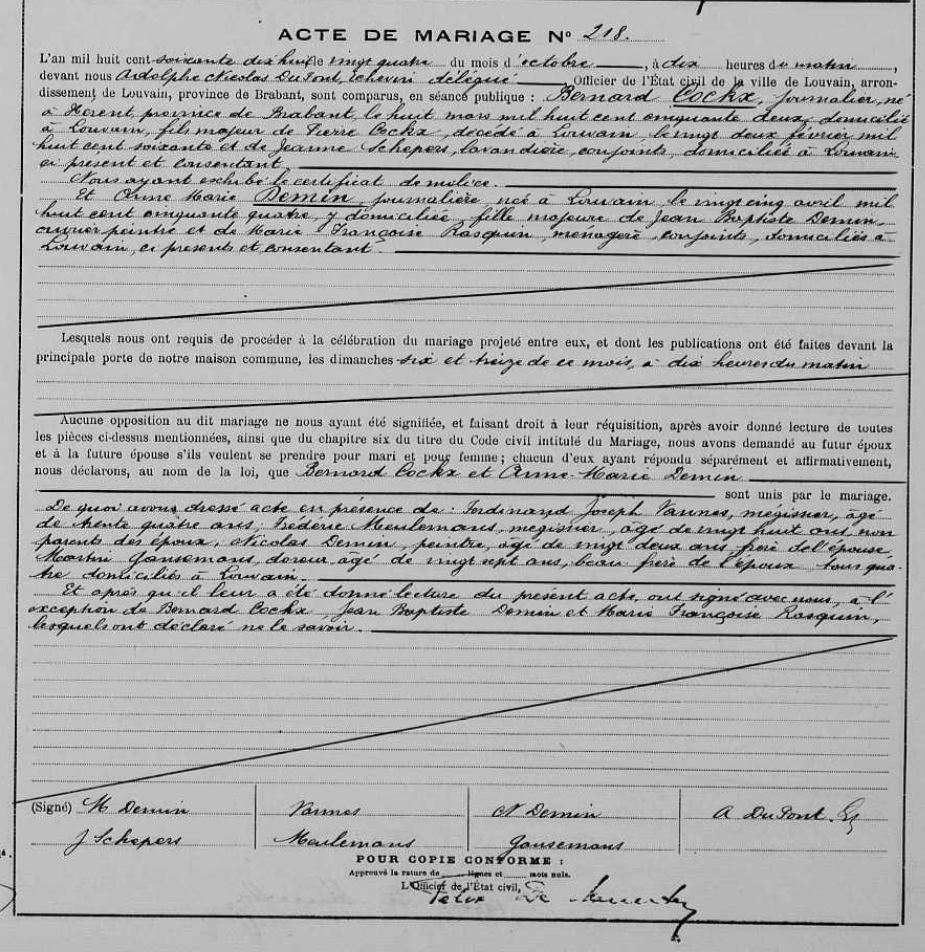 ACTE DE MARIAGE No 218.
L'an mil huit cent soixante dix huit le vingt quatre du mois d'octobre, à dix heures du matin,
devant nous Adolphe Nicolas DuPont, échevin délégué, Officier de l'État civil de la ville de Louvain, arron-
dissement de Louvain, province de Brabant, sont comparus, en séance publique : Bernard Cockx, journalier, né
à Herent, province de Brabant, le huit mars mil huit cent cinquante deux, domicilié
à Louvain, fils majeur de Pierre Cockx, décédé à Louvain le vingt deux février mil
huit cent soixante et de Jeanne Schepers, lavandière, conjoints, domiciliée à Louvain
ci présent et consentant
Nous ayant exhibé le certificat de milice.
Et Anne Marie Demin, journalière, née à Louvain le vingt cinq avril mil
huit cent cinquante quatre, y domiciliée, fille majeure de Jean Baptiste Demin,
ouvrier peintre et de Marie Françoise Rasquin, ménagère, conjoints, domiciliés à
Louvain, ci présents et consentant.
Lesquels nous ont requis de procéder à la célébration du mariage projeté entre eux, et dont les publications ont été faites devant la
principale porte de notre maison commune, les dimanches six et treize de ce mois, à dix heures du matin
Aucune opposition au dit mariage ne nous ayant été signifiée, et faisant droit à leur réquisition, après avoir donné lecture de toutes
les pièces ci-dessus mentionnées, ainsi que du chapitre six du titre du Code civil intitulé du Mariage, nous avons demandé au futur époux
et à la future épouse s'ils veulent se prendre pour mari et pour femme ; chacun d'eux ayant répondu séparément et affirmativement,
nous déclarons, au nom de la loi, que Bernard Cockx et Anne-Marie Demin
sont unis par le mariage.
De quoi avons dressé acte en présence de : Ferdinand Joseph Vannes, mégissier, âgé
de trente quatre ans, Frédéric Meulemans, mégissier, âgé de vingt huit ans, non
parents des époux, Nicolas Demin, peintre, âgé de vingt deux ans, frère de l'épouse,
Martin Gansemans, doreur, âgé de vingt sept ans, beau frère de l'époux tous qua-
tre domiciliés à Louvain.
Et après qu'il leur a été donné lecture du présent acte, ont signé avec nous, à l'
exception de Bernard Cockx Jean Baptiste Demin et Marie Françoise Rasquin,
lesquels ont déclaré ne le savoir.
(Signé) M Demin Vannes N Demin A DuPont
J Schepers Meulemans Gansemans
POUR COPIE CONFORME :
Approuvé la rature de lignes et mots nuls.
L'Officier de l'État civil,
Felix De